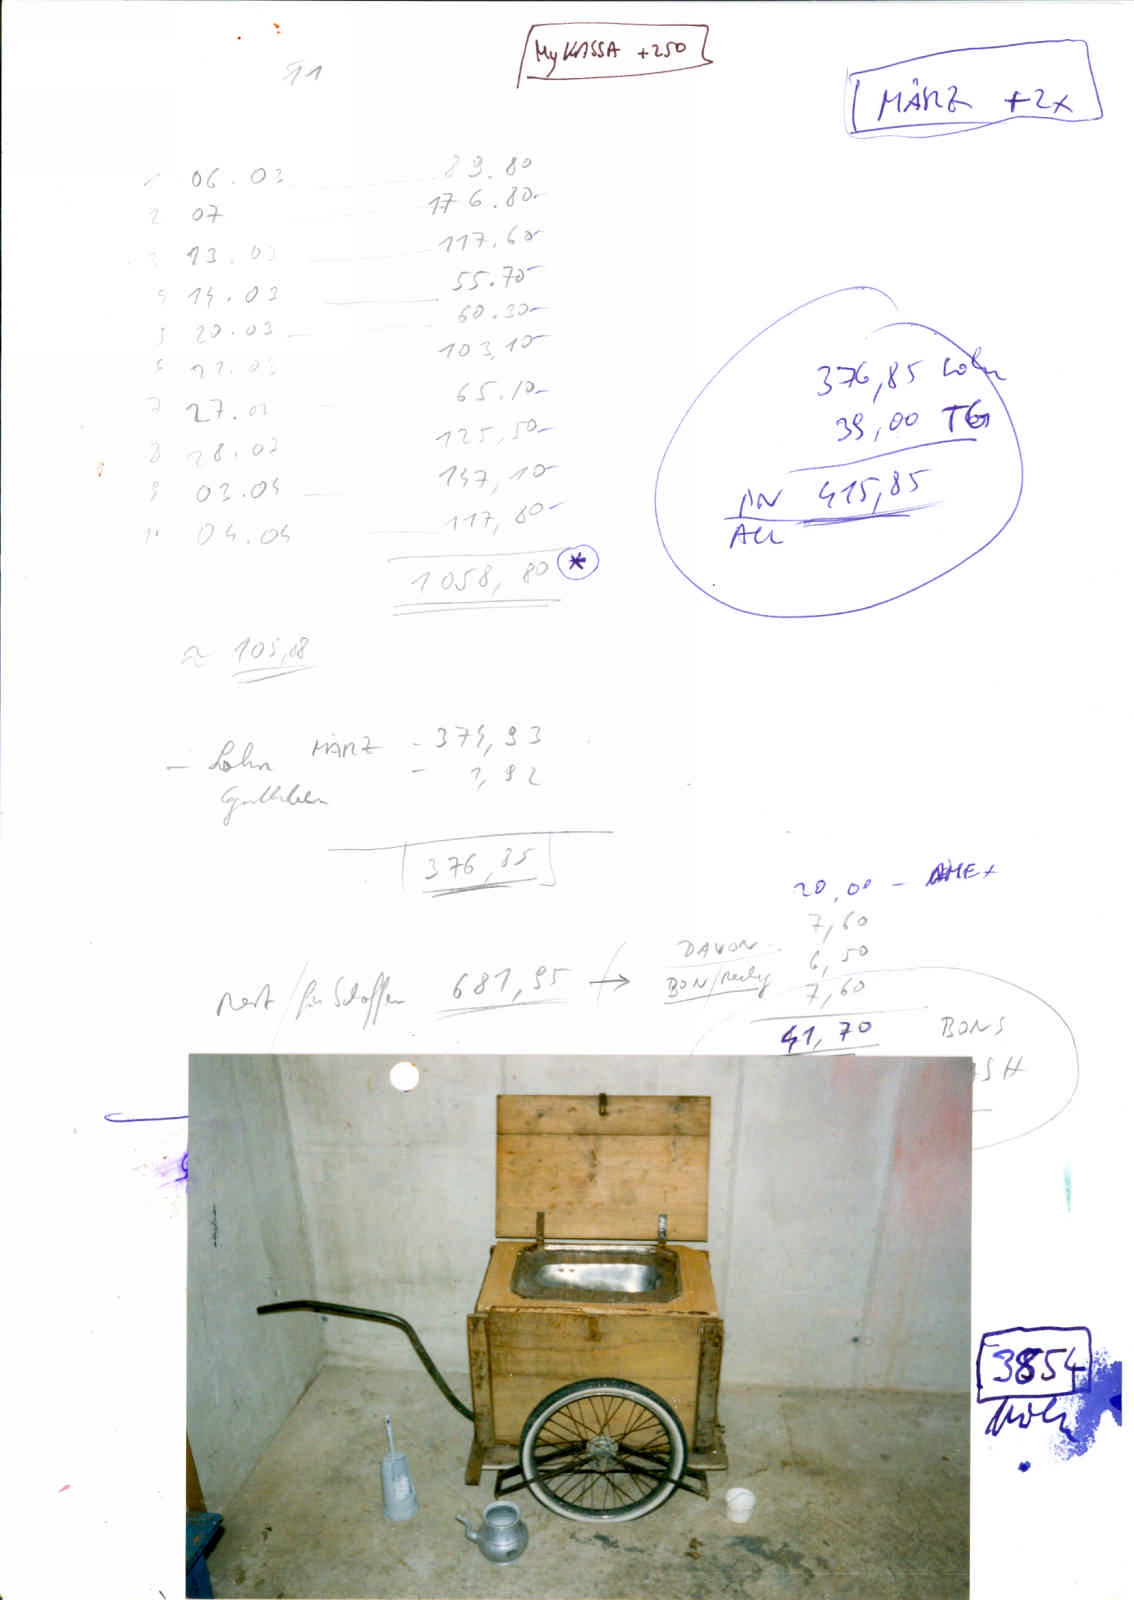 My KASSA +250
MÄRZ +2x
11
1 06.03 89.80
2 07 176.80-
3 13.03 117.60-
4 14.03 55.70-
5 20.03 60.30-
6 21.03 103,10-
7 27.03 65.10-
8 28.03 125,50-
9 03.04 147,10-
10 04.04 117,80-
1058,80 *
376,85 Lohn
39,00 TG
AN 415,85
ALL
≈ 105,88
- Lohn MÄRZ - 374,93
- 1,92
376,85
20,00 - AMEX
7,60
DAVON 6,50
BON 7,60
Rest / für Schaffen 681,95 →
41,70 BONS
3854